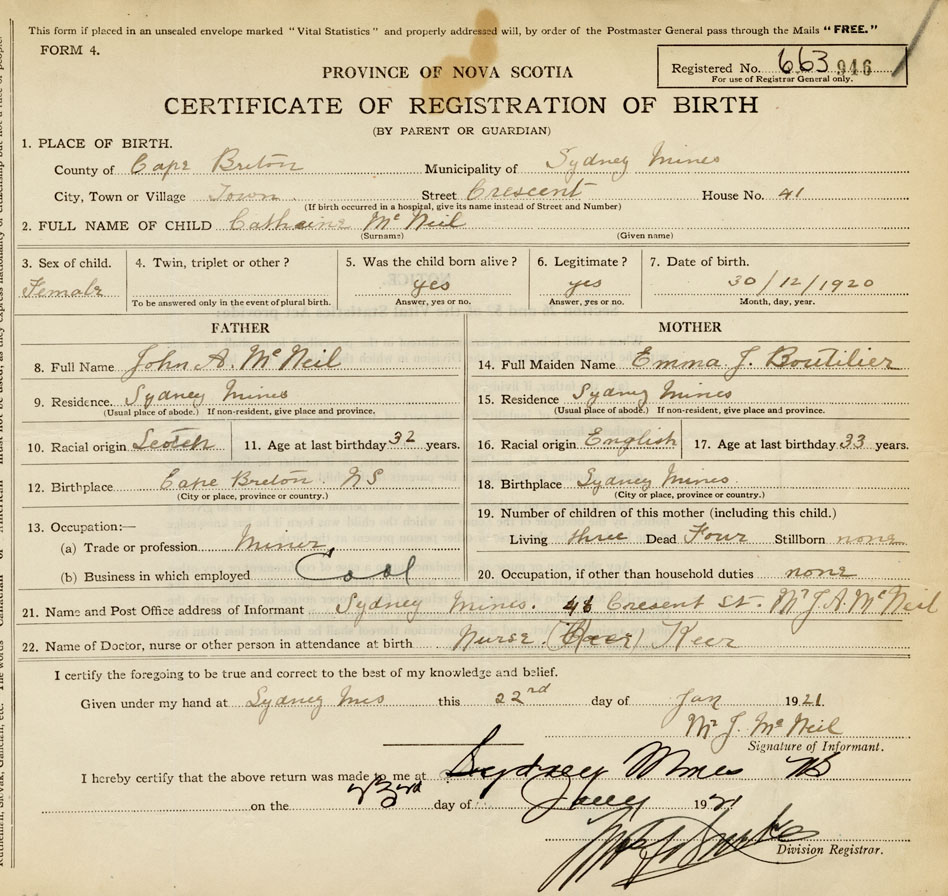 This form if placed in an unsealed envelope marked "Vital Statistics" and properly addressed will, by order of the Postmaster General pass through the Mails "FREE."
FORM 4.
Registered No. 663 946
For use of Registrar General only.
PROVINCE OF NOVA SCOTIA
CERTIFICATE OF REGISTRATION OF BIRTH
(BY PARENT OR GUARDIAN)
1. PLACE OF BIRTH.
County of Cape Breton Municipality of Sydney Mines
City, Town or Village Town Street Crescent House No. 41
(If birth occurred in a hospital, give its name instead of Street and Number)
2. FULL NAME OF CHILD Catherine McNeil
(Surname) (Given name)
3. Sex of child. 4. Twin, triplet or other? 5. Was the child born alive? 6. Legitimate? 7. Date of birth.
Female yes yes 30/12/1920
To be answered only in the event of plural birth. Answer, yes or no. Answer, yes or no. Month, day, year.
FATHER MOTHER
8. Full Name John A. McNeil 14. Full Maiden Name Emma J. Boutilier
9. Residence. Sydney Mines 15. Residence Sydney Mines
(Usual place of abode.) If non-resident, give place and province. (Usual place of abode.) If non-resident, give place and province.
10. Racial origin Scotch 11. Age at last birthday 32 years. 16. Racial origin English 17. Age at last birthday 33 years.
12. Birthplace Cape Breton NS 18. Birthplace Sydney Mines
(City or place, province or country.) (City or place, province or country.)
13. Occupation:— 19. Number of children of this mother (including this child.)
(a) Trade or profession Miner Living three Dead Four Stillborn none
(b) Business in which employed Coal 20. Occupation, if other than household duties none
21. Name and Post Office address of Informant Sydney Mines. 41 Cresent St. Mr J. A. McNeil
22. Name of Doctor, nurse or other person in attendance at birth Nurse Keer
I certify the foregoing to be true and correct to the best of my knowledge and belief.
Given under my hand at Sydney Mines this 22nd day of Jan 1921
Mr J. McNeil
Signature of Informant.
I hereby certify that the above return was made to me at Sydney Mines NS
on the 23rd day of Jany 1921
Division Registrar.